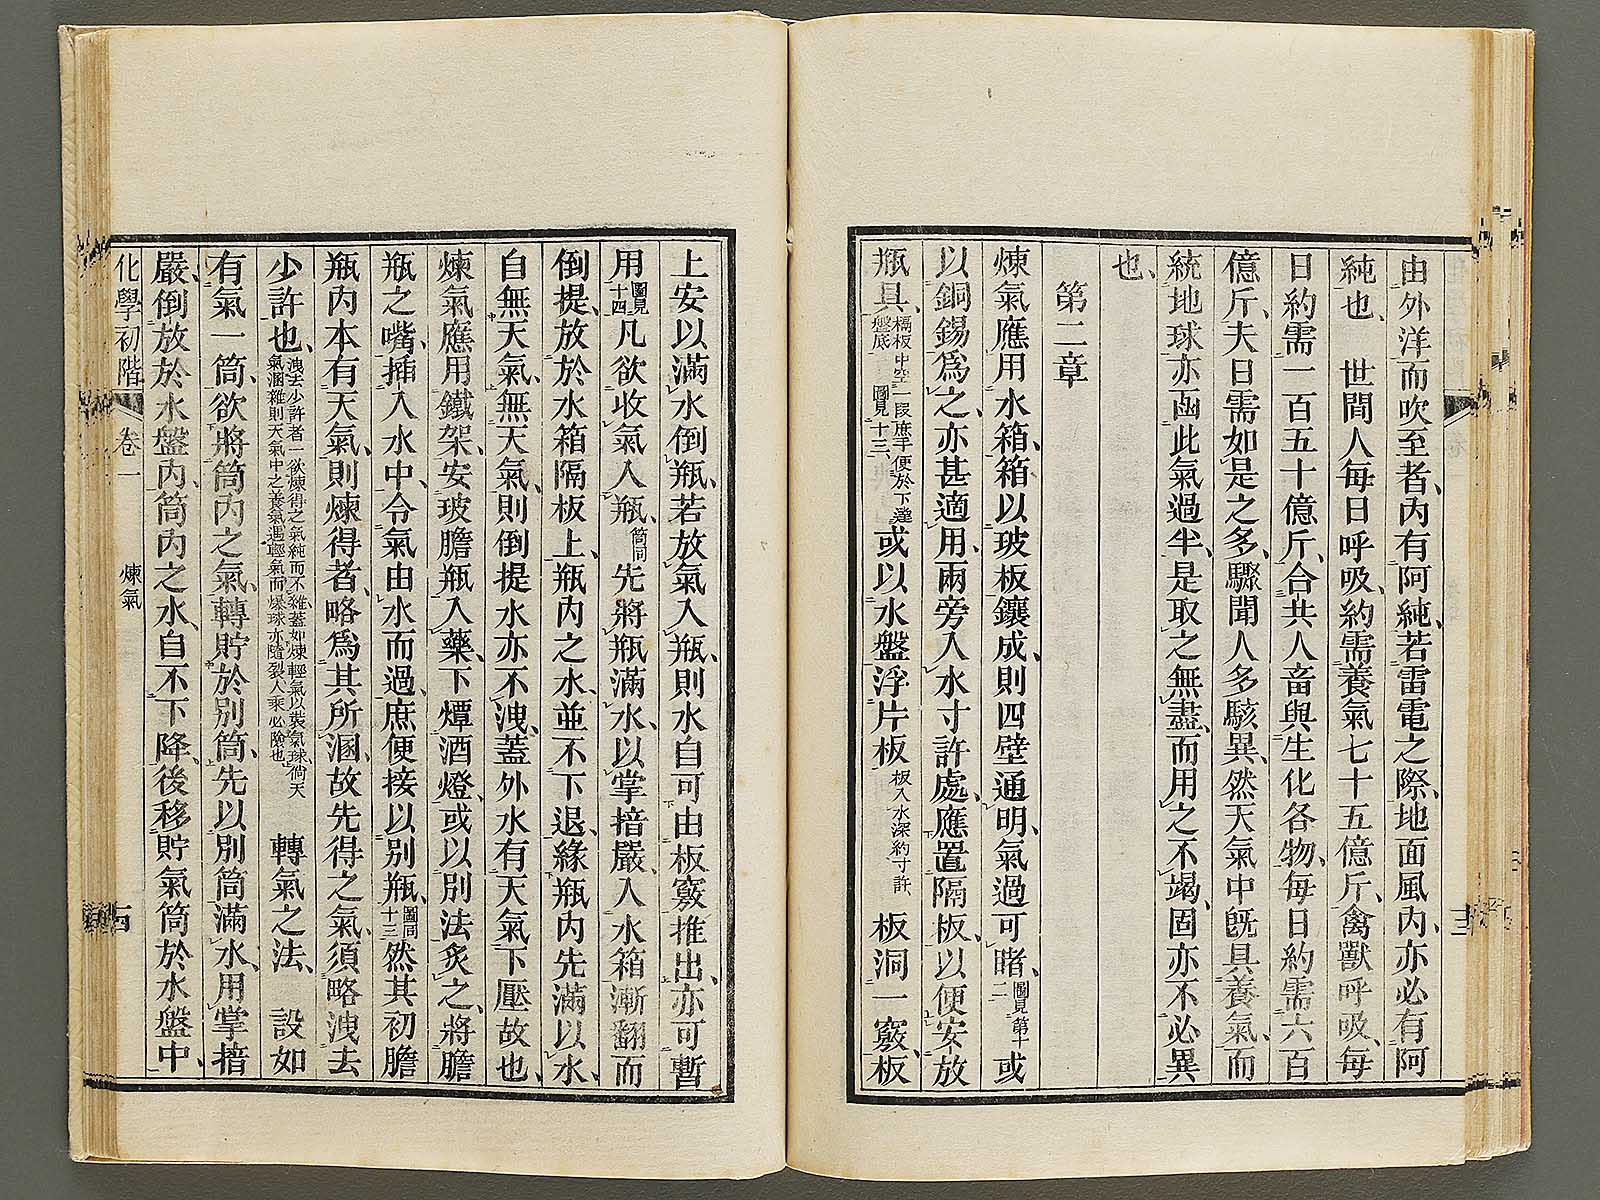 由外洋而吹至者、內有阿純、若雷電之際、地面風內、亦必有阿
純也、　世間人每日呼吸、約需養氣七十五億斤、禽獸呼吸、每
日約需一百五十億斤、合共人畜與生化各物、每日約需六百
億斤、夫日需如是之多、驟聞人多駭異、然天氣中旣具養氣、而
統地球亦函此氣過半、是取之無盡、而用之不竭、固亦不必異
也、
第二章
煉氣應用水箱、箱以玻板鑲成、則四壁通明、氣過可睹、圖見第十二或
以銅錫爲之、亦甚適用、兩旁入水寸許處、應置隔板、以便安放
瓶具、槅板中空一段庶手便於下達盤底　圖見十三、或以水盤浮片板　板入水深約寸許　板洞一竅、板
上安以滿水倒瓶、若放氣入瓶、則水自可由板竅推出、亦可暫
用圖見十四凡欲收氣入瓶、筒同先將瓶滿水、以掌揞嚴、入水箱漸翻而
倒提、放於水箱隔板上、瓶內之水、並不下退、緣瓶內先滿以水、
自無天氣、無天氣、則倒提水亦不洩、蓋外水有天氣下壓故也、
煉氣應用鐵架、安玻膽瓶入藥、下燂酒燈、或以別法炙之、將膽
瓶之嘴、揷入水中、令氣由水而過、庶便接以別瓶、圖同十三然其初膽
瓶內本有天氣、則煉得者、略爲其所溷、故先得之氣、須略洩去
少許也、洩去少許者一欲煉得之氣純而不雜蓋如煉輕氣以裝氣球、倘天氣溷雜則天氣中之養氣遇輕氣而爆球亦隨裂人乘必險也、　轉氣之法、　設如
有氣一筒、欲將筒內之氣、轉貯於別筒、先以別筒滿水、用掌揞
嚴、倒放於水盤內、筒內之水、自不下降、後移貯氣筒於水盤中、
化學初階　卷一　煉氣